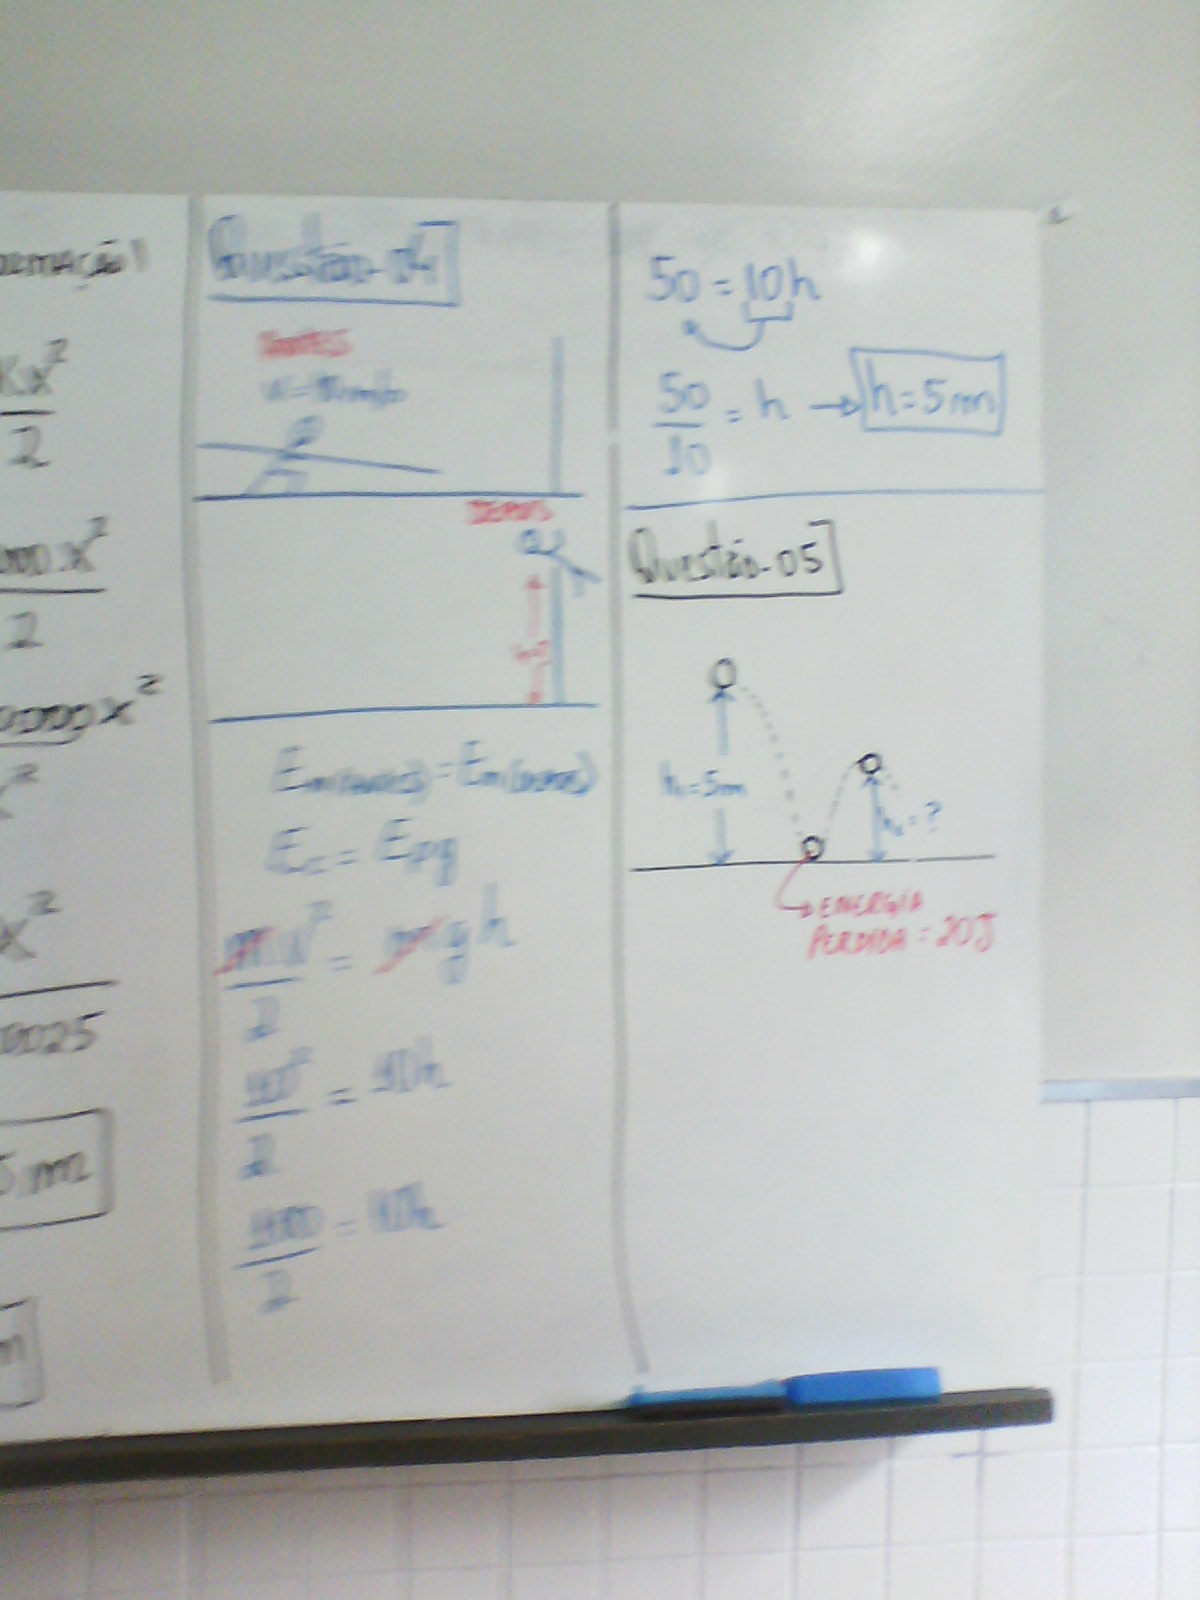 ORMAÇÃO!
Kx²
2
000x²
2
0000x²
x²
x²
0025
5m
m
Questão-04
ANTES
v=10m/s
DEPOIS
Em(ANTES) = Em(DEPOIS)
Ec = Epg
mv² = mgh
2
10² = 10h
2
100 = 10h
2
50 = 10h
50 = h → h=5m
10
Questão-05
h₁=5m
h₂=?
ENERGIA
PERDIDA = 20J